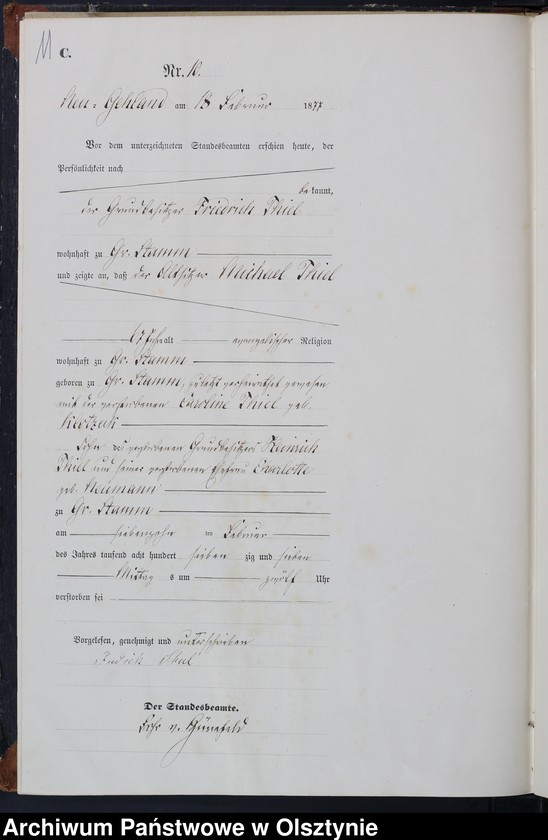 11
C.
Nr. 10.
Neu-Gehland am 18 Februar 1877
Vor dem unterzeichneten Standesbeamten erschien heute, der
Persönlichkeit nach
bekannt,
der Grundbesitzer Friedrich Thiel
wohnhaft zu Gr. Stamm
und zeigte an, daß der Altsitzer Michael Thiel
67 Jahr alt evangelischer Religion
wohnhaft zu Gr. Stamm
geboren zu Gr. Stamm, zuletzt verheirathet gewesen
mit der verstorbenen Caroline Thiel geb.
Sohn des verstorbenen Grundbesitzers Heinrich
Thiel und seiner verstorbenen Ehefrau Charlotte
geb. Neumann
zu Gr. Stamm
am siebenzehn ten Februar
des Jahres tausend acht hundert sieben zig und sieben
Mittag s um zwölf Uhr
verstorben sei
Vorgelesen, genehmigt und unterschrieben
Friedrich Thiel
Der Standesbeamte.
Archiwum Państwowe w Olsztynie